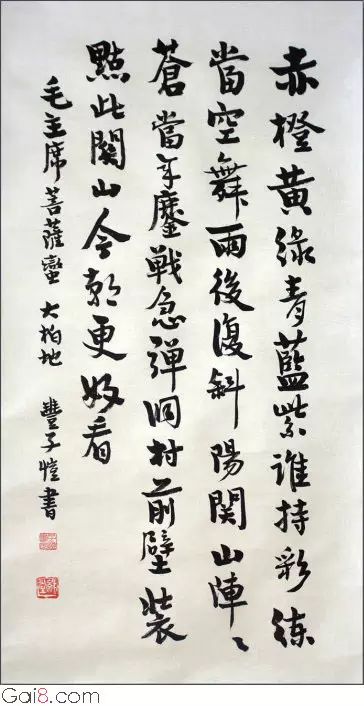 赤橙黃綠青藍紫誰持彩練
當空舞雨後復斜陽関山陣〻
蒼當年鏖戦急弾洞村前壁裝
點此関山今朝更好看
毛主席菩薩蠻 大柏地 豐子愷書
Gai8.com